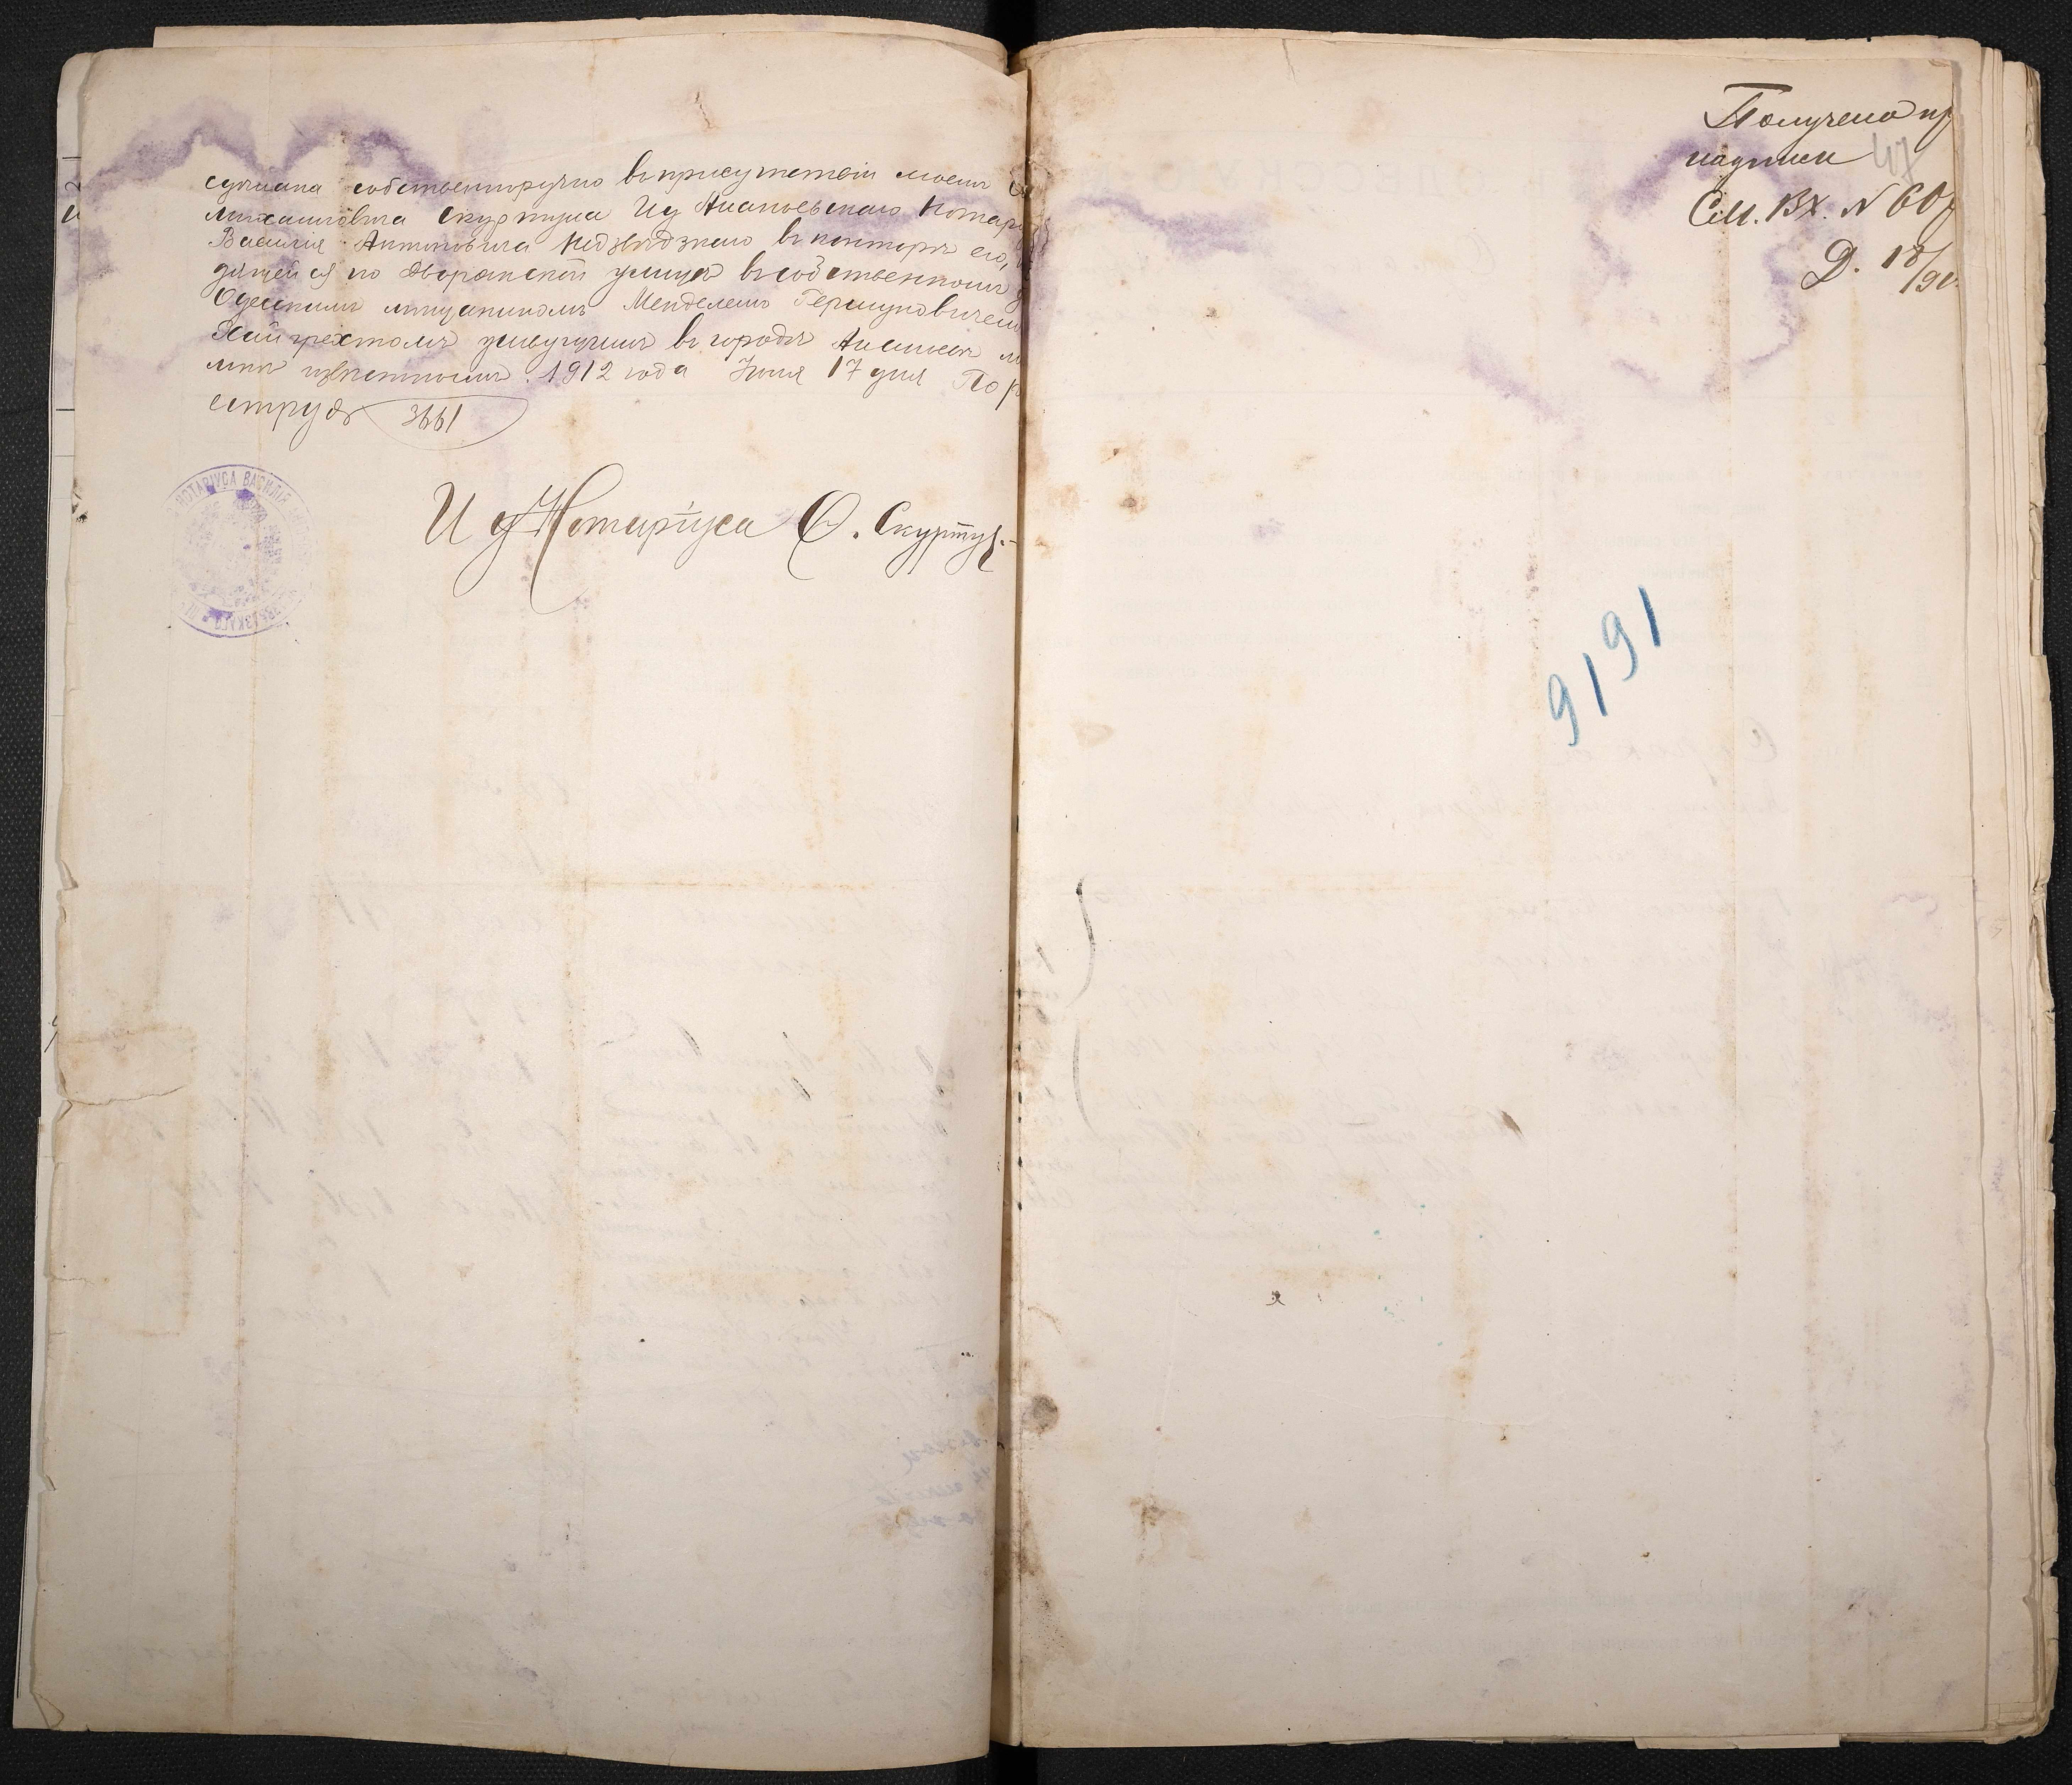 сделана собственноручно въ присутствіи моемъ
Михайловича Скуртула И д Ананьевскаго Нотар
Василія Антоновича Недзвѣдзкаго въ конторѣ его,
дящейся по Дворянской улицѣ въ собственномъ
Одесскимъ мѣщаниномъ Менделемъ Гершуновичемъ
живущимъ въ городѣ Ананьевѣ
мнѣ извѣстнымъ. 1912 года Іюня 17 дня По р
естру № 3661
И д Нотаріуса О. Скуртул
НОТАРІУСА ВАСИЛІЯ
Получено пр
надписи 47
См. Вх. N 60
Д. 18/91
9191